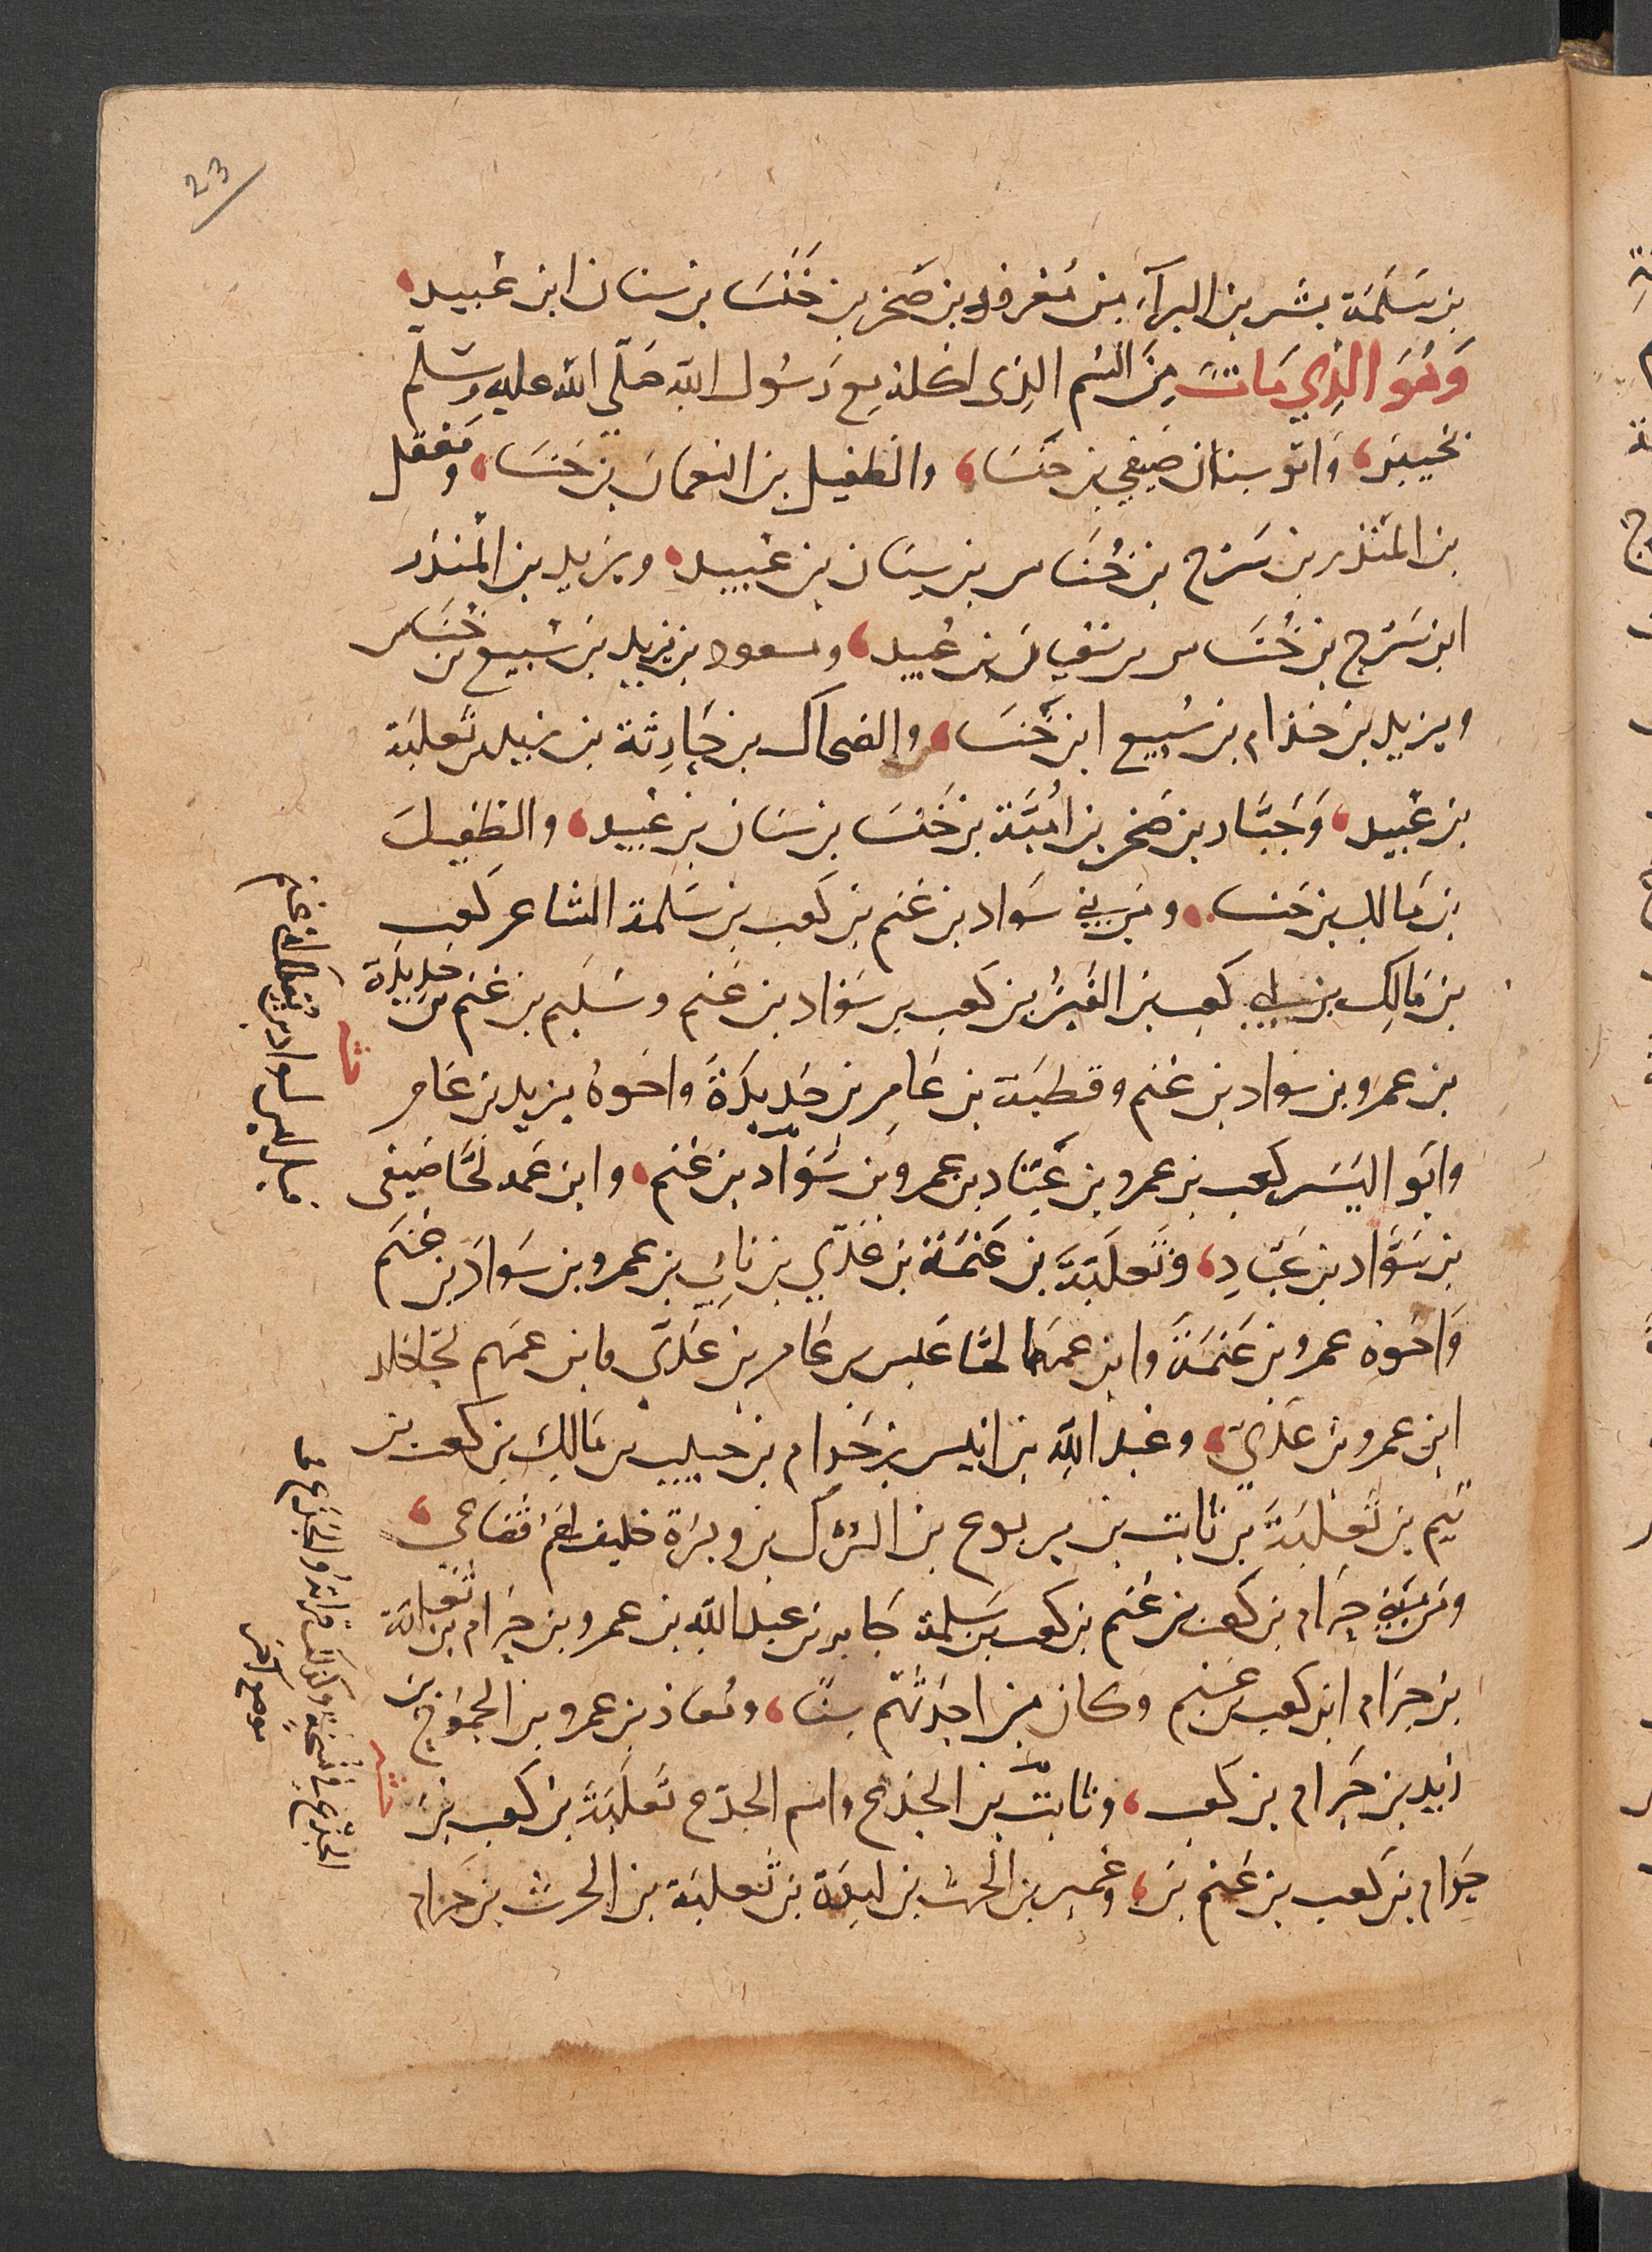 23
بن سَلَمَة بشر بن البرآء بن مَعْرُور بن صَخر بن خَنْسَا بن سنان ابن عُبيد،
وَهُوَ الذِي مَاتَ مِنَ السُم الذى اكله مع رَسُول الله صَلّى الله عليه وسلّم
بخيبَر، وَابو سنان صَيفي بن خنسَا، والطفيل بن النعمان بن خنسَا، ومَعقل
بن المنْذر بن سَرْح بن خُنَاس بن سِنَان بن عُبيد، ويزيد بن المنذر
ابن سَرْح بن خُنَاس بن سنان بن عُبيد، ومسعود بن يزيد بن سُبيع بن خنَاس
ويزيد بن خذام بن سُبيع ابن خنسَا، والضحاك بن حَارِثة بن زيد بن ثعلبَة
بن عُبيد، وَجَبَّار بن صَخر بن امَيَّة بن خَنسَا بن سنان بن عُبيد، والطفيل
بن مَالك بن خنسا، ومن بني سَواد بن غنم بن كعب بن سَلمة الشاعر كعب
بن مَالِك بن ابي كعب بن القَين بن كعب بن سَوَاد بن غنم وسُليم بن غنم بن حَدِيدَة
بن عمرو بن سَواد بن غنم وقطبَة بن عَامِر بن حَدِيدَةَ واخوهُ يزيد بن عَامر
وابو اليَسَر كعب بن عمرو بن عَبّاد بن عمرو بن سَوّاد بن غنم، وابن عمه لحًّا صَيفى
بن سَوَّاد بن عَبّادِ، وثعلَبَة بن عَنَمَة بن عَدّي بن نابي بن عمرو بن سَوادَ بن غنم
وَاخوه عمرو بن عَنَمَةَ وابن عمهَا لحًّا عَبس بن عَامر بن عَدّى وابن عمهم لحًّا خالد
ابن عمرو بن عَدّي، وعبد الله بن انيس بن حَرام بن حبيب بن مَالك بن كعب بن
تيم بن ثعلبَةَ بن ثابت بن يربوع بن البرك بن وبرَة حليف لهم قضاعي،
ومن بَني حِرَام بن كعب بن غَنم بن كعب بن سَلمة جَابر بن عبد الله بن عمرو بن حِرَام بن ثعلبَة
بن حِرَام ابن كعب بن غنم وكان من احدَثهم سِنًّا، ومُعاذ بن عمرو بن الجمُوح بن
زيد بن حِرَام بن كعب، وثابت بن الجذع واسم الجذع ثعلَبَة بن كعب بن
حِرَام بن كعب بن غنم بن، وعُمير بن الحرث بن لبدَة بن ثعلبَة بن الحرث بن حَرام